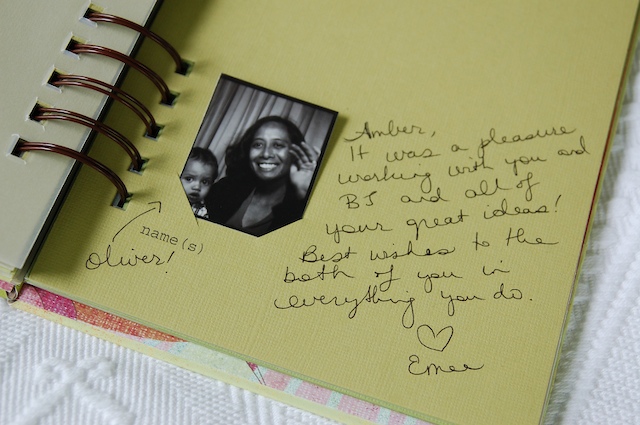 Amber,
It was a pleasure
working with you and
BJ and all of
your great ideas!
Best wishes to the
both of you in
everything you do.
name(s)
Oliver!